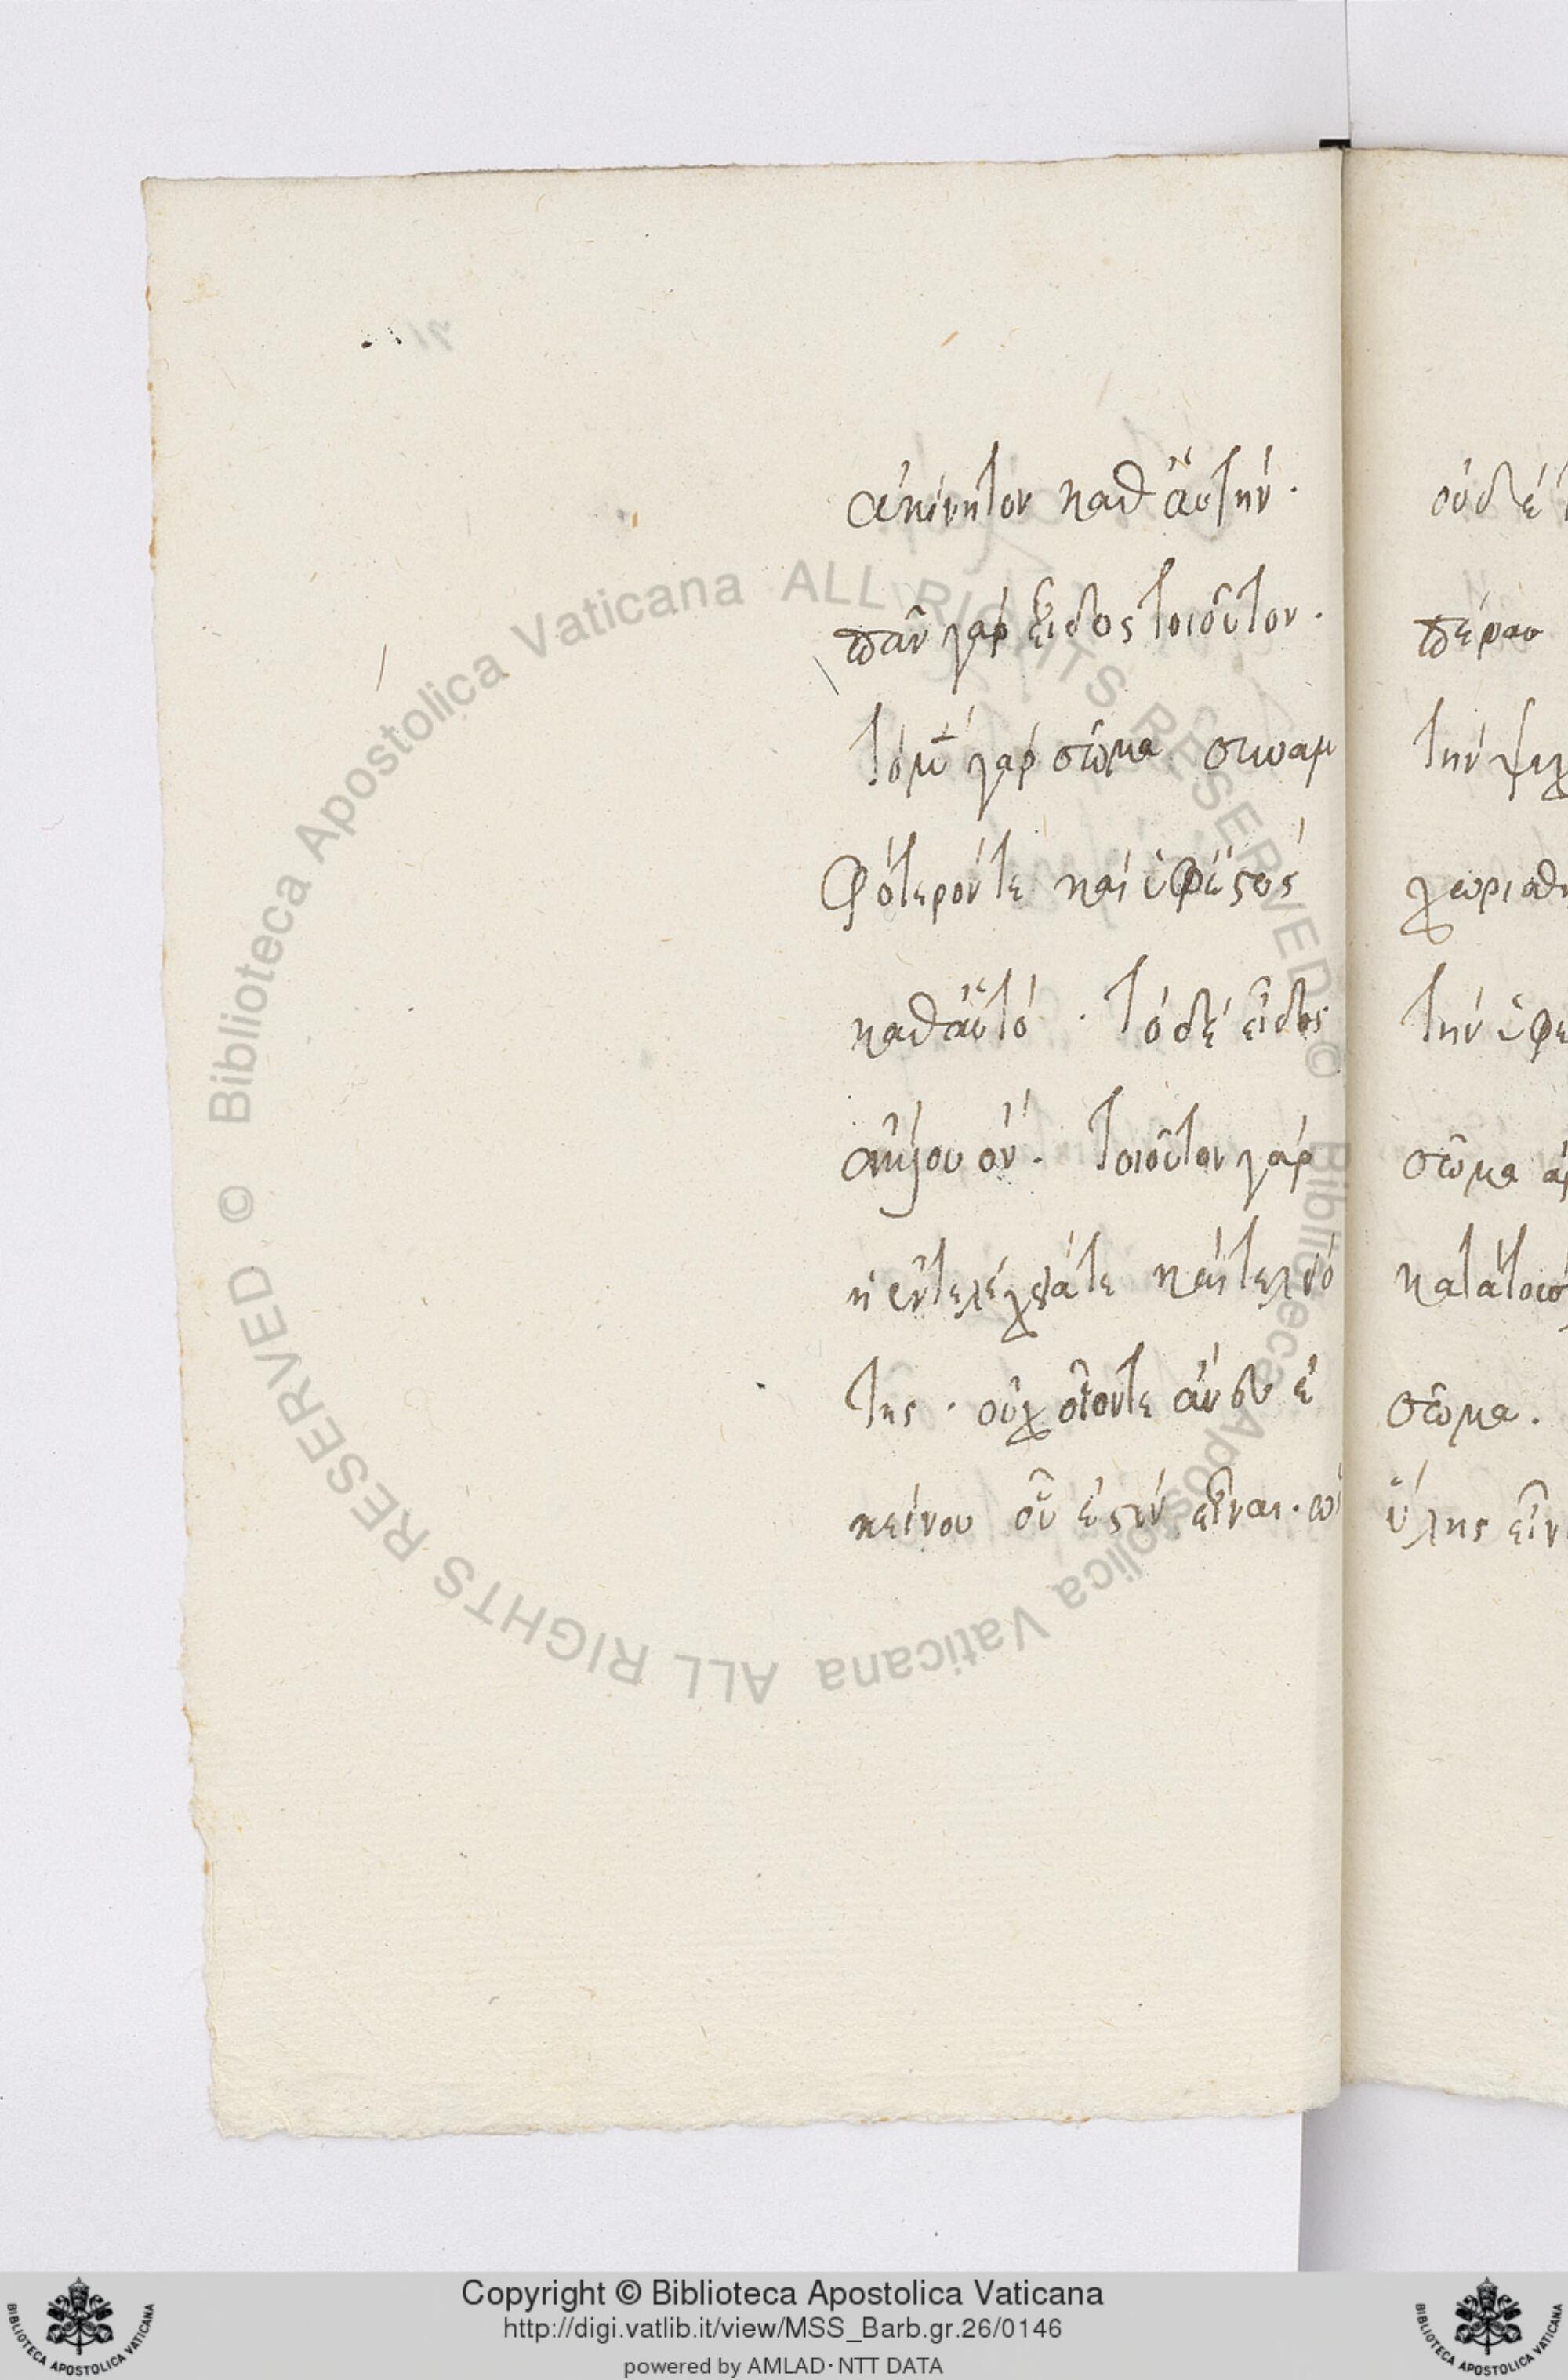 ἀκίνητον καθ ἁυτήν.
πᾶν γάρ εἶδος τοιοῦτον.
τό μέν γάρ σῶμα συναμ
φότερόντε καί ὑφεστός
καθ ἁυτό. τό δέ εἶδος
ἄϋλον ὄν. τοιοῦτον γάρ
ἡ ἐντελέχειάτε καί τελειό
της. οὐχ οἷόντε ἄνευ ἐ
κείνου οὗ ἐστίν εἶναι.
οὐδέ
πέρασ
τήν ψυχ
χωρισθ
τήν ὑφε
σῶμα
κατά τοσ
σῶμα.
ὕλης εἶν
Biblioteca Apostolica Vaticana ALL RIGHTS RESERVED ©
Biblioteca Apostolica Vaticana ALL RIGHTS RESERVED ©
Copyright © Biblioteca Apostolica Vaticana
http://digi.vatlib.it/view/MSS_Barb.gr.26/0146
powered by AMLAD·NTT DATA
BIBLIOTECA APOSTOLICA VATICANA
BIBLIOTECA APOSTOLICA VATICANA